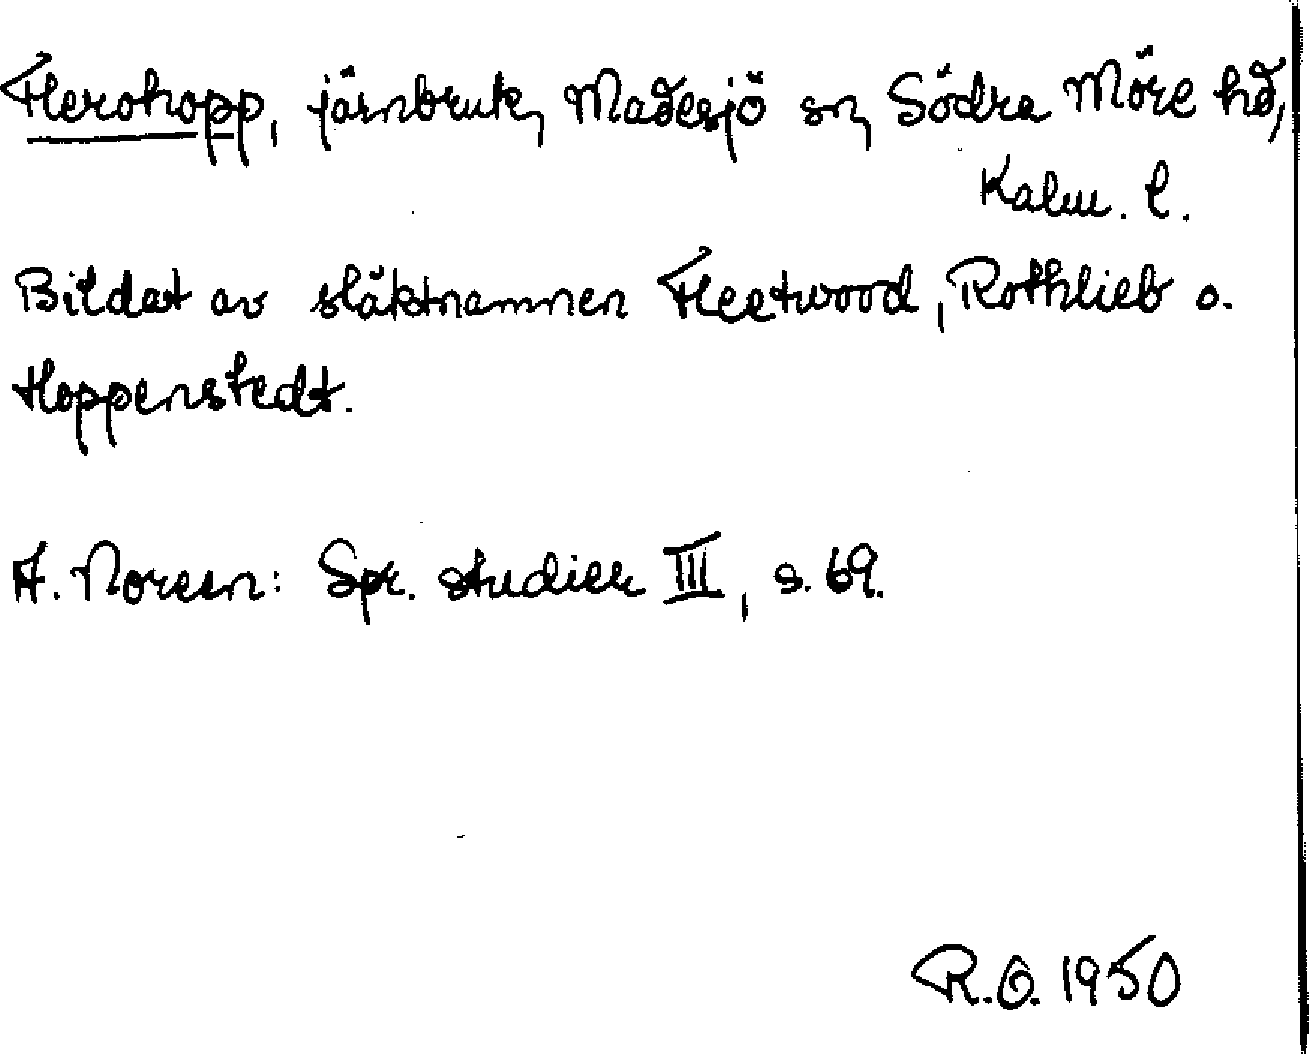 Flerohopp, järnbruk, Madesjö sn, Södra Möre hd,
Kalm. l.
Bildat av släktnamnen Fleetwood, Rothlieb o.
Hoppenstedt.
A. Noreen: Spr. studier III, s. 69.
R.O. 1950